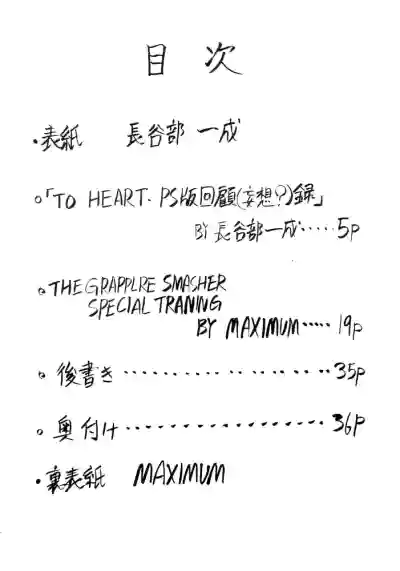 目次
・表紙 長谷部 一成
○「TO HEART・PS版回顧(妄想?)録」
BY 長谷部一成・・・・・5p
○THE GRAPPLRE SMASHER
SPECIAL TRANING
BY MAXIMUM・・・・・19p
○後書き・・・・・・・・・・・・・・・35p
○奥付け・・・・・・・・・・・・・・・・36p
・裏表紙 MAXIMUM